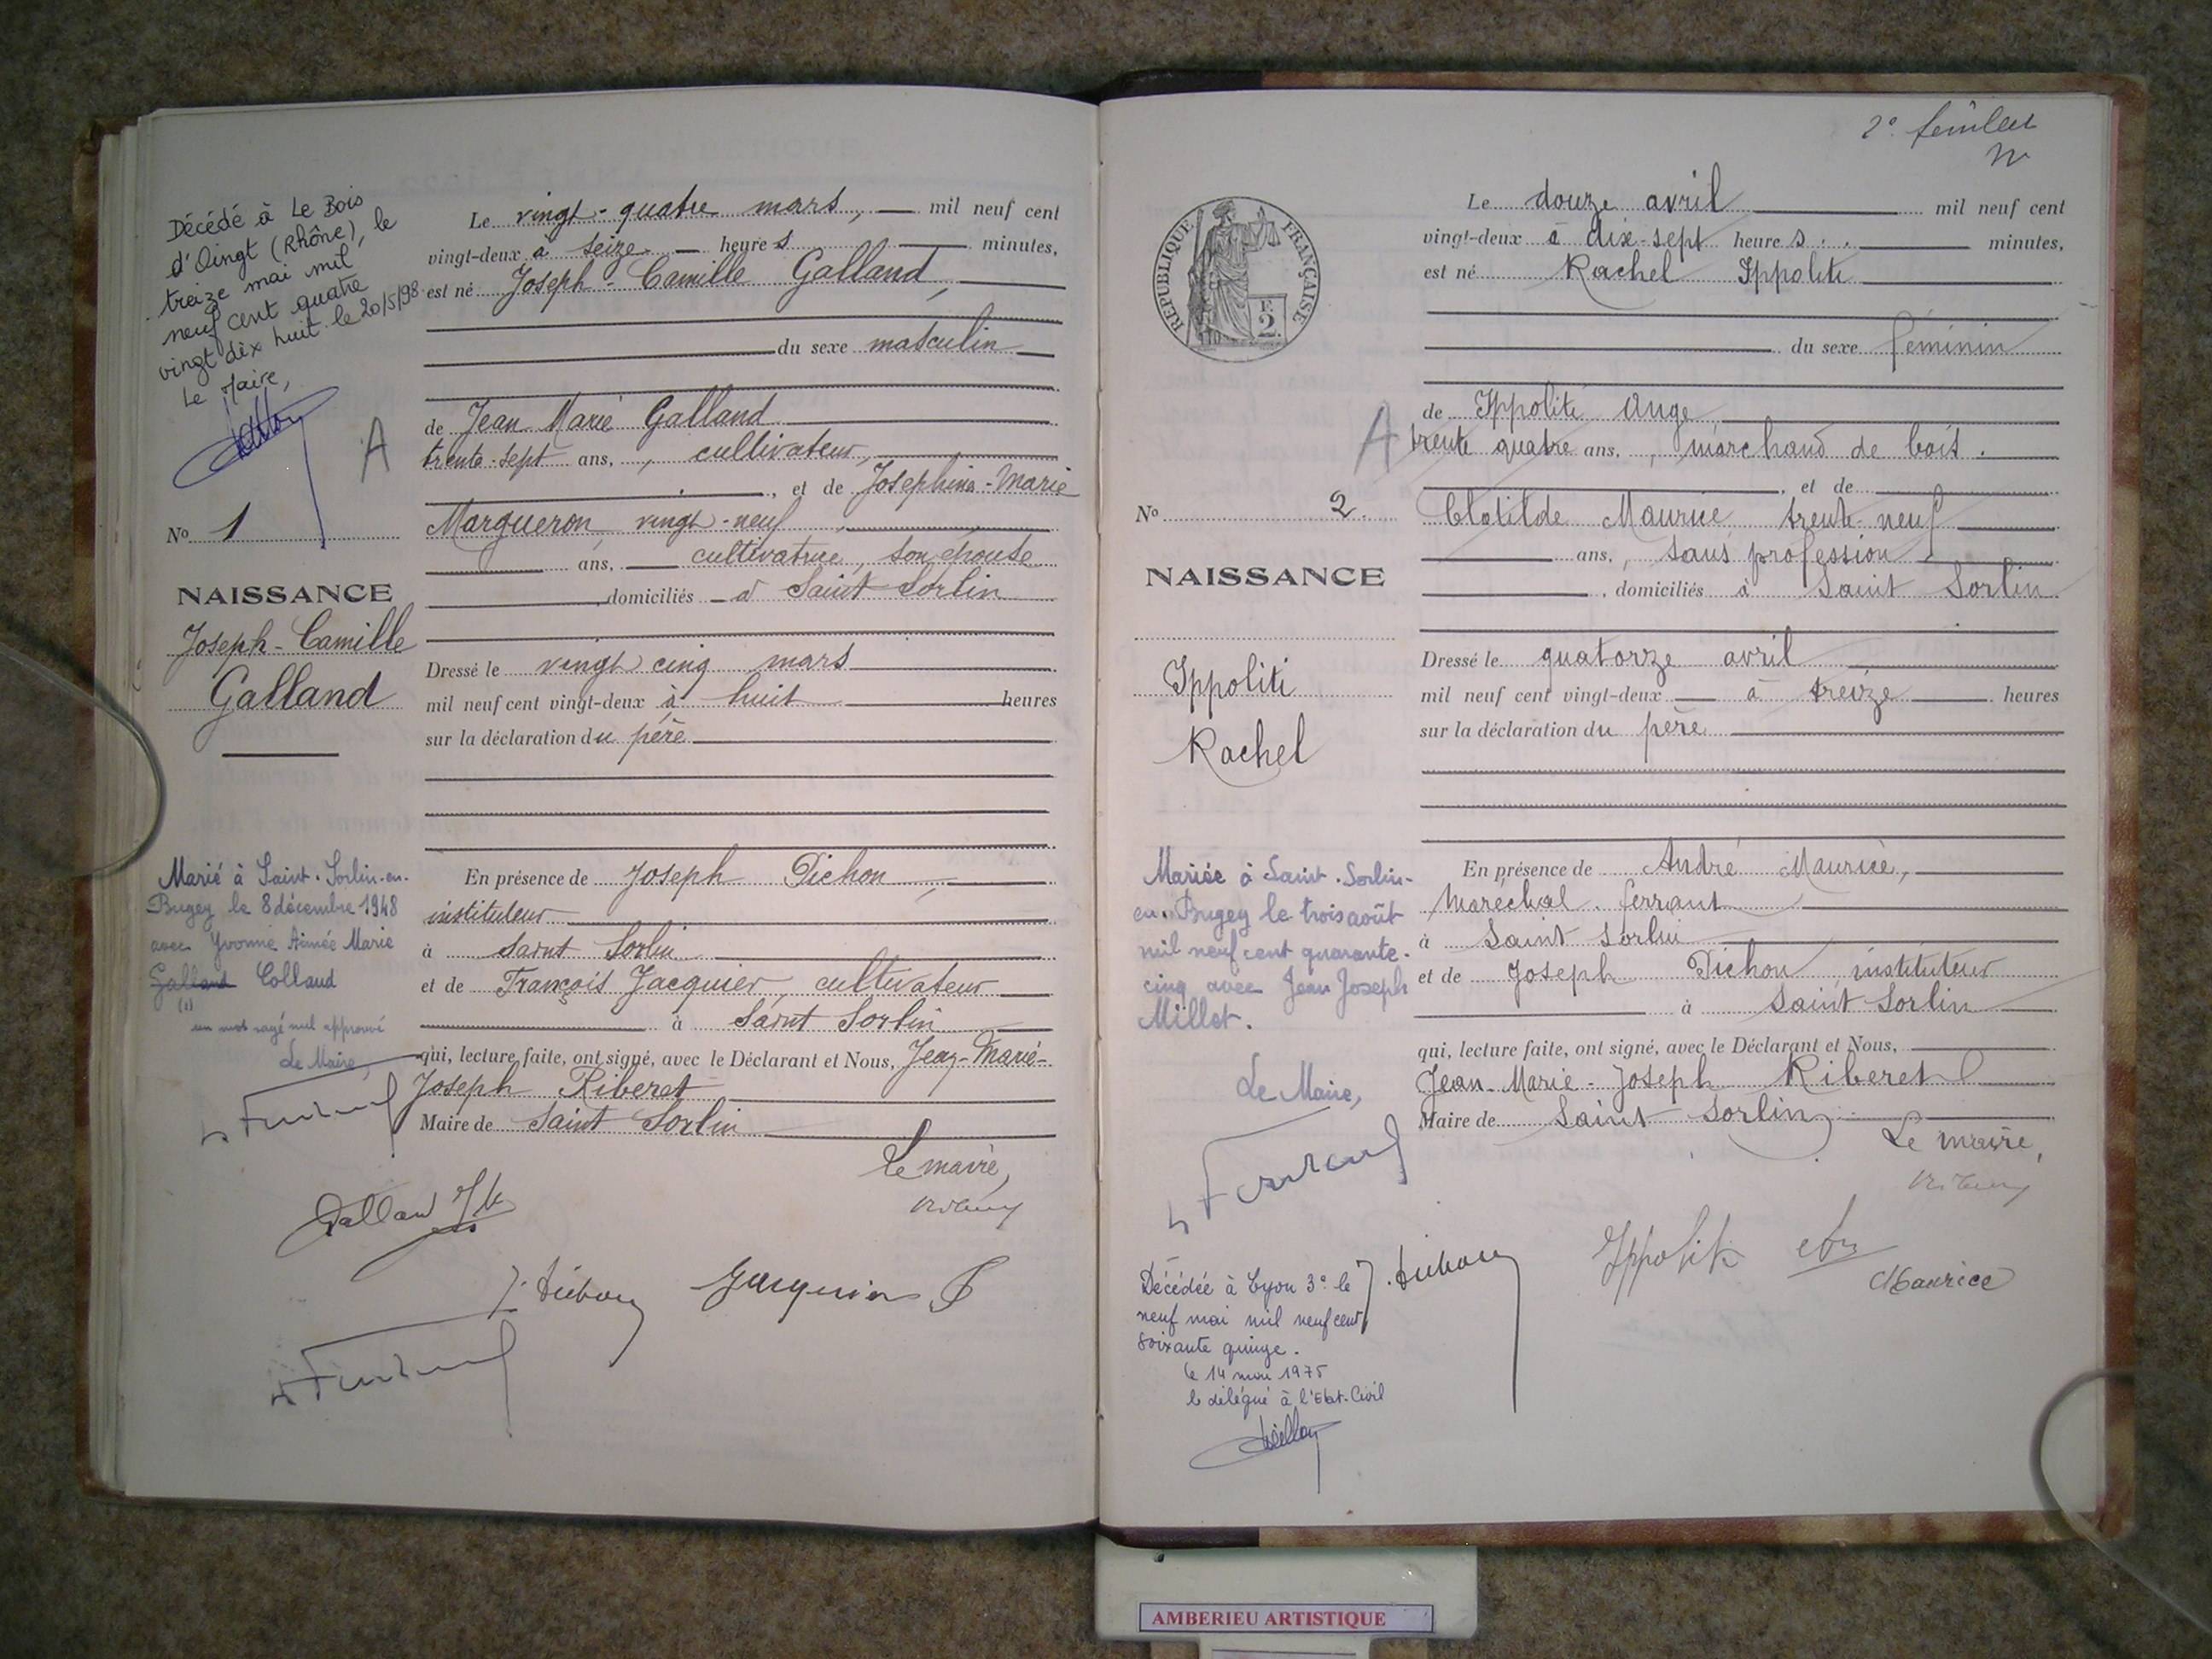 Décédé à Le Bois
d'Oingt (Rhône), le
treize mai mil
neuf cent quatre
vingt dix huit le 20/5/98
Le Maire,
A
No 1
NAISSANCE
Joseph-Camille
Galland
Marié à Saint-Sorlin-en-
Bugey le 8 décembre 1948
avec Yvonne Aimée Marie
Galland Collaud
(1)
un mot rayé nul approuvé
Le Maire,
Le vingt-quatre mars, mil neuf cent
vingt-deux à seize heures minutes,
est né Joseph-Camille Galland,
du sexe masculin
de Jean Marie Galland
trente-sept ans, , cultivateur,
, et de Joséphine-Marie
Margueron, vingt-neuf
ans, cultivatrice, son épouse
, domiciliés à Saint Sorlin
Dressé le vingt cinq mars
mil neuf cent vingt-deux à huit heures
sur la déclaration du père
En présence de Joseph Dichon,
instituteur
à Saint Sorlin
et de François Jacquier cultivateur
à Saint Sorlin
qui, lecture faite, ont signé, avec le Déclarant et Nous, Jean-Marie-
Joseph Riberet
Maire de Saint Sorlin
Le maire,
Galland
RÉPUBLIQUE FRANÇAISE
F.
2.
Le douze avril mil neuf cent
vingt-deux à dix-sept heures minutes,
est né Rachel Ippoliti
du sexe féminin
de Ippoliti Ange
A
trente quatre ans, , marchand de bois.
, et de
No 2.
Clotilde Maurice trente-neuf
ans, , sans profession,
, domiciliés à Saint Sorlin
NAISSANCE
Ippoliti
Rachel
Dressé le quatorze avril
mil neuf cent vingt-deux à treize heures
sur la déclaration du père
En présence de André Maurice,
Maréchal-ferrant
à Saint Sorlin
et de Joseph Dichon instituteur
à Saint Sorlin
qui, lecture faite, ont signé, avec le Déclarant et Nous,
Jean-Marie-Joseph Riberet
Maire de Saint Sorlin
Le maire,
Mariée à Saint-Sorlin-
en-Bugey le trois août
mil neuf cent quarante-
cinq avec Jean Joseph
Millet.
Le Maire,
Ippoliti
Maurice
Décédée à Lyon 3e le
neuf mai mil neuf cent
soixante quinze.
le 14 mai 1975
le délégué à l'Etat-Civil
AMBERIEU ARTISTIQUE